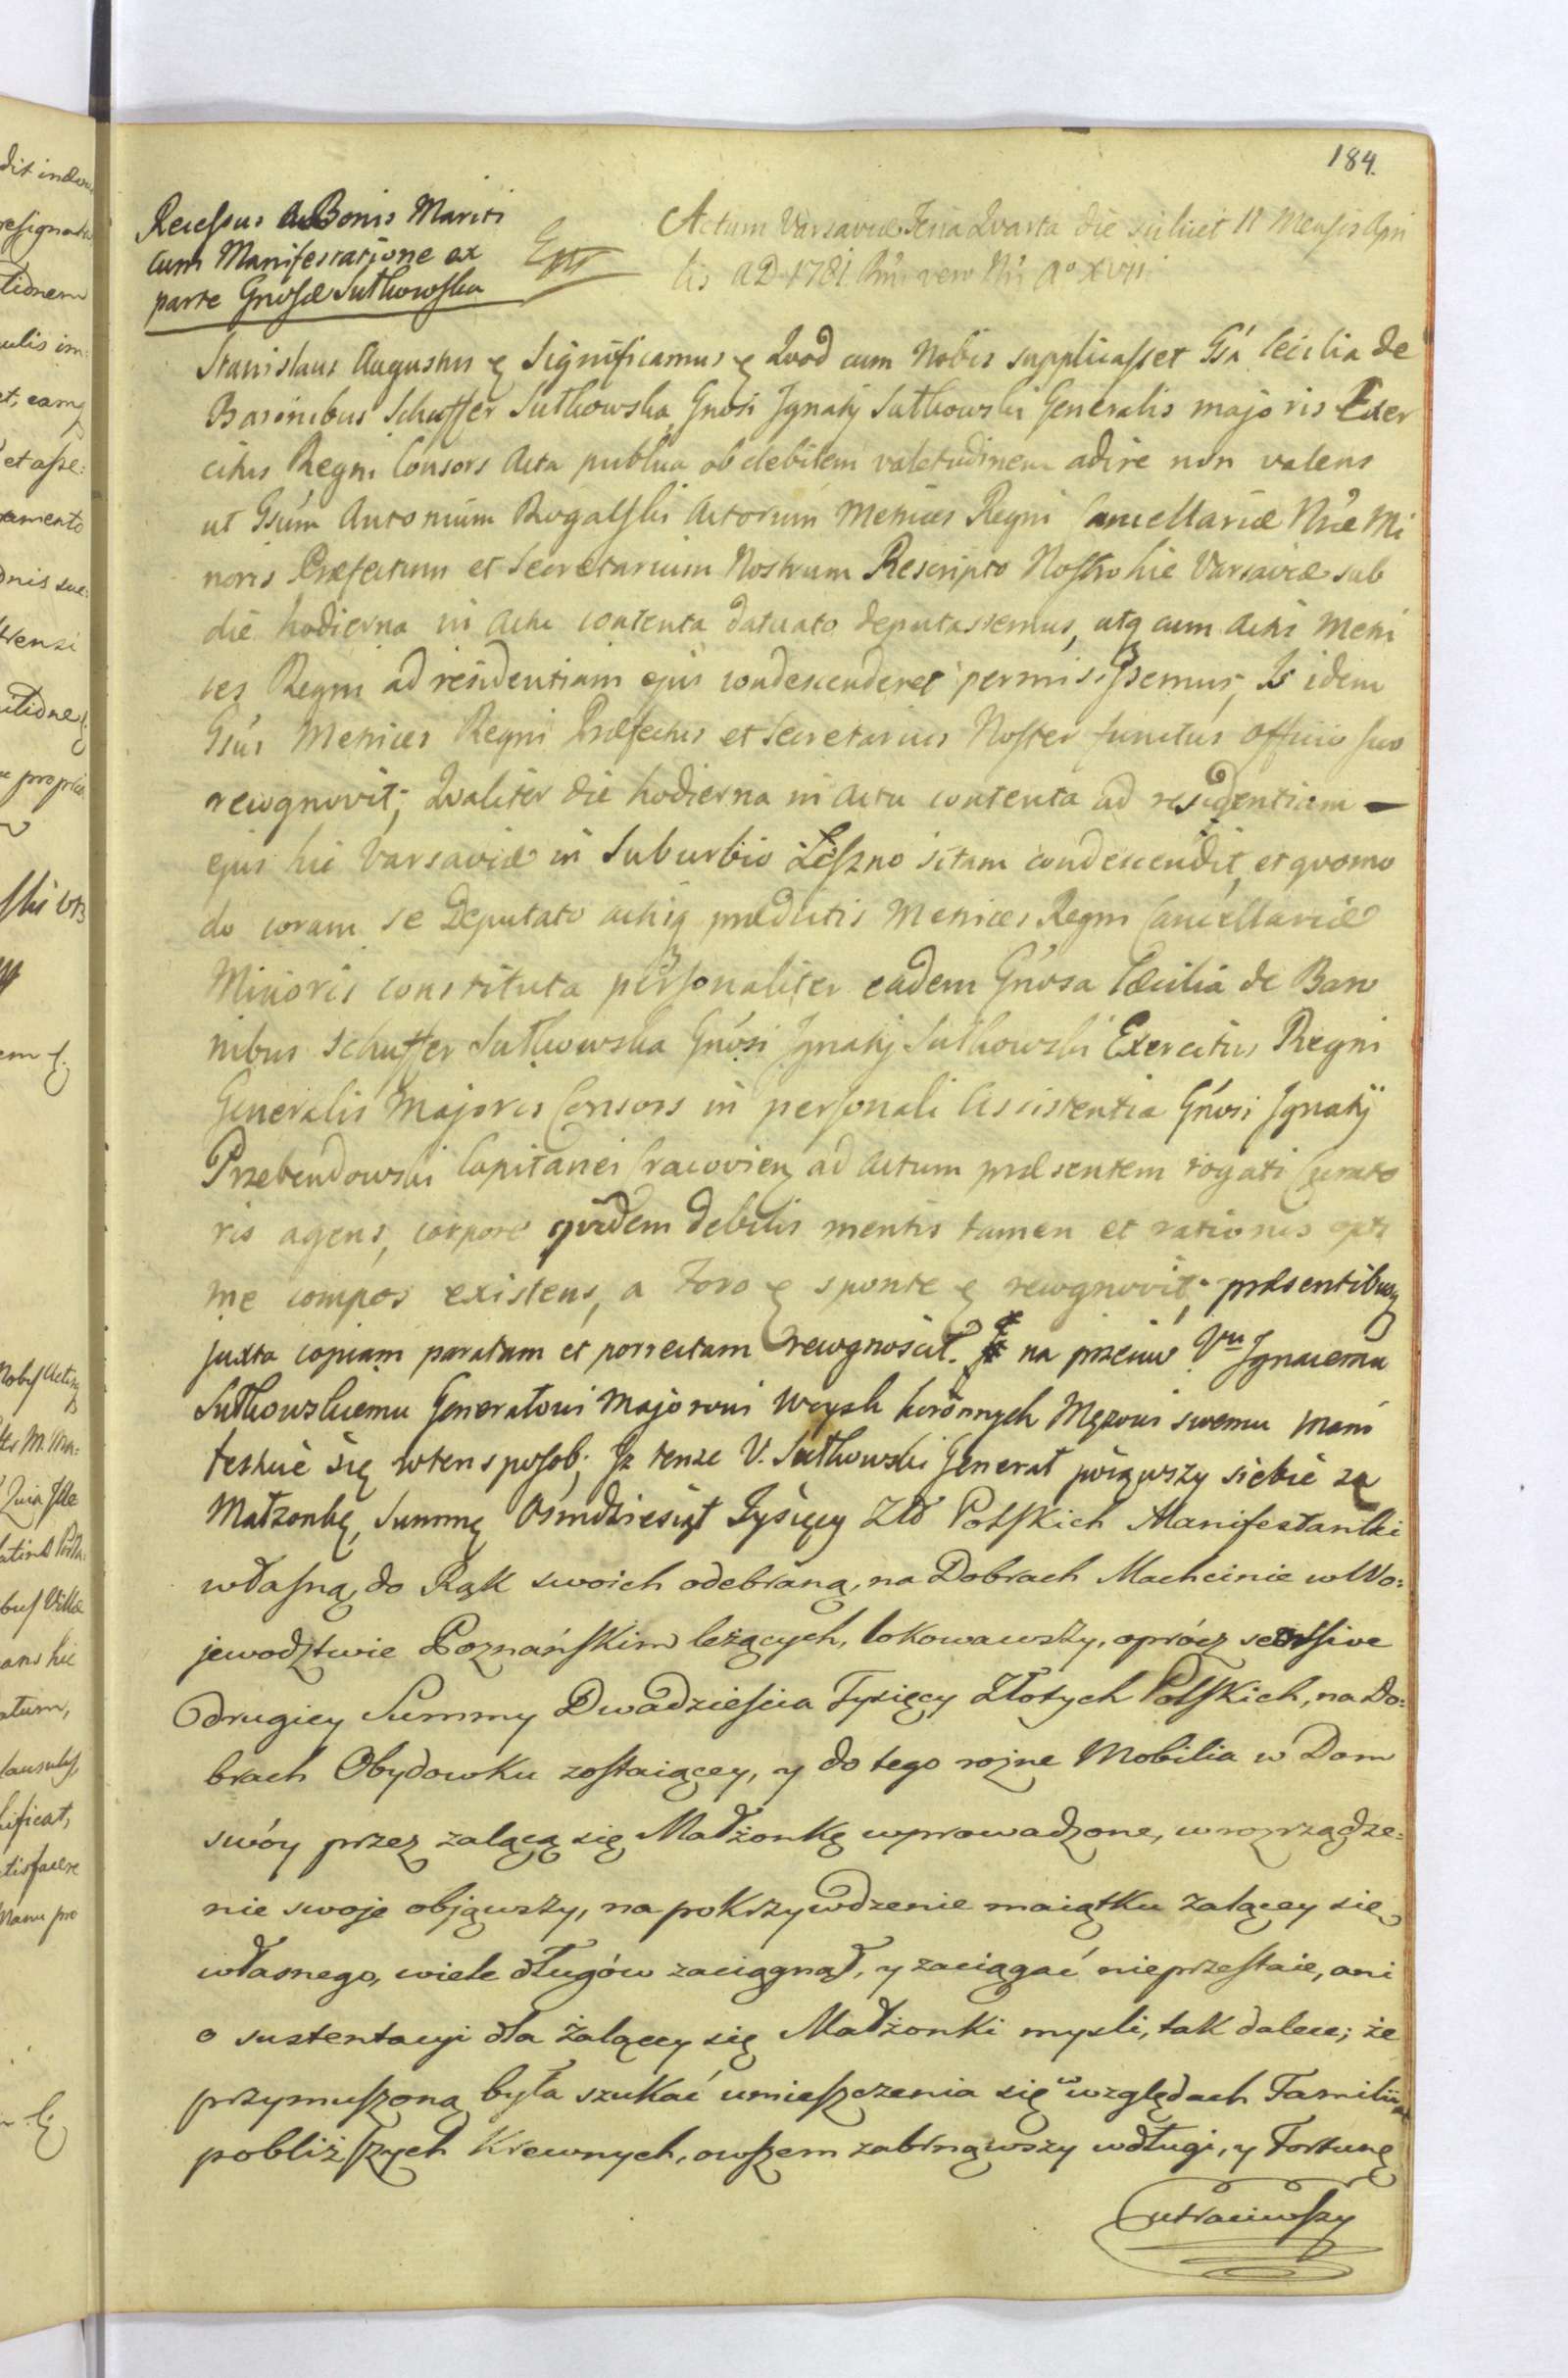 184.
Recessus a Bonis Mariti
cum Manifestatione ex
parte Gnosæ Sułkowska
Actum Varsaviæ Feria Quarta die scilicet 11 Mensis Apri
lis AD 1781 Rni vero Nri Ao XVII
Stanislaus Augustus & Significamus & Quod cum Nobis supplicasset Gsa Cecilia de
Baronibus Schaffer Sułkowska Gnosi Jgnatij Sułkowski Generalis majoris Exer
citus Regni Consors Acta publica ob debilem valetudinem adire non valens
ut Gsum Antonium Rogalski Actorum Metrices Regni Cancellariæ Nræ Mi
noris Præfectum et Secretarium Nostrum Rescripto Nostro hic Varsaviæ sub
die hodierna in Actu contenta datuato deputassemus, utq cum Actis Metri
ces Regni ad residentiam ejus condescenderet permisissemus, Is idem
Gsus Metrices Regni Præfectus et Secretarius Noster functus officio suo
recognovit; Qualiter die hodierna in Actu contenta ad residentiam
ejus hic Varsaviæ in Suburbio Leszno sitam condescendit, et quomo
do coram se Deputato actisq prædictis Metrices Regni Cancellariæ
Minoris constituta personaliter eadem Gnosa Cæcilia de Baro
nibus Schaffer Sułkowska Gnosi Jgnatij Sułkowski Exercitus Regni
Generalis Majoris Consors in personali Assistentia Gnosi Jgnatij
Przebendowski Capitanei Cracovien ad Actum præsentem rogati Curato
ris agens, corpore quidem debilis mentis tamen et rationis opti
me compos existens, a Foro & sponte & recognovit; præsentibusq
juxta copiam paratam et porrectam recognoscit. Jż na przeciw Vmu Jgnacemu
Sułkowskiemu Generałowi Majorowi Woysk koronnych Męzowi swemu mani
festuie się wten sposob; Jz tenze V. Sułkowski Generał poiąwszy siebie za
Małzonkę, Summę Osmdziesiąt Tysięcy Zło Polskich Manifestantki
własną, do Rąk swoich odebraną, na Dobrach Machcinie w Wo:
jewodztwie Poznańskim leżących, lokowawszy, oprócz seorsive
drugiey Summy Dwadzieścia Tysięcy Złotych Polskich, na Do:
brach Obydowku zostaiącey, y do tego rozne Mobilia w Dom
swóy przez zalącą się Małżonkę wprowadzone, w rozrządze:
nie swoje objąwszy, na pokrzywdzenie maiątku zalącey się
własnego, wiele długów zaciągnął, y zaciągać nieprzestaie, ani
o sustentacyi dla żalącey się Małżonki mysli, tak dalece; że
przymuszoną była szukać umieszczenia się w względach Familii
pobliższych Krewnych, owszem zabrnąwszy w długi, y Fortunę
utraciwszy